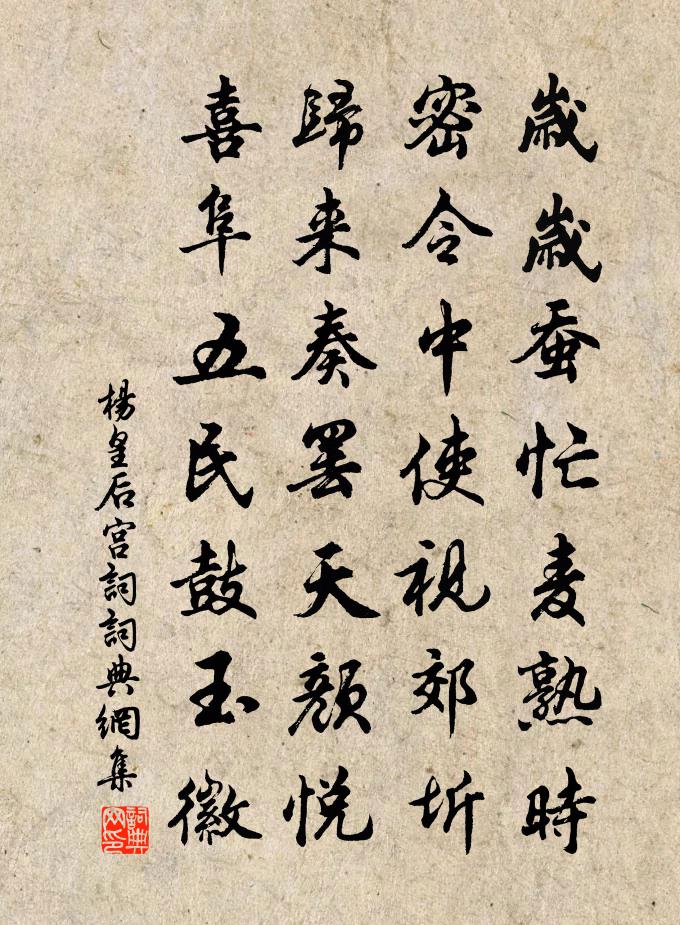 歳歳蚕忙麦熟時
密令中使視郊圻
歸来奏罢天顔悦
喜阜五民鼓玉徽
楊皇后宫詞詞典網集
詞典网印